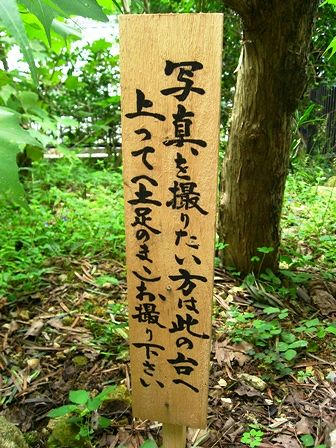 写真を撮りたい方は此の台へ
上ってへ土足のまゝお撮り下さい